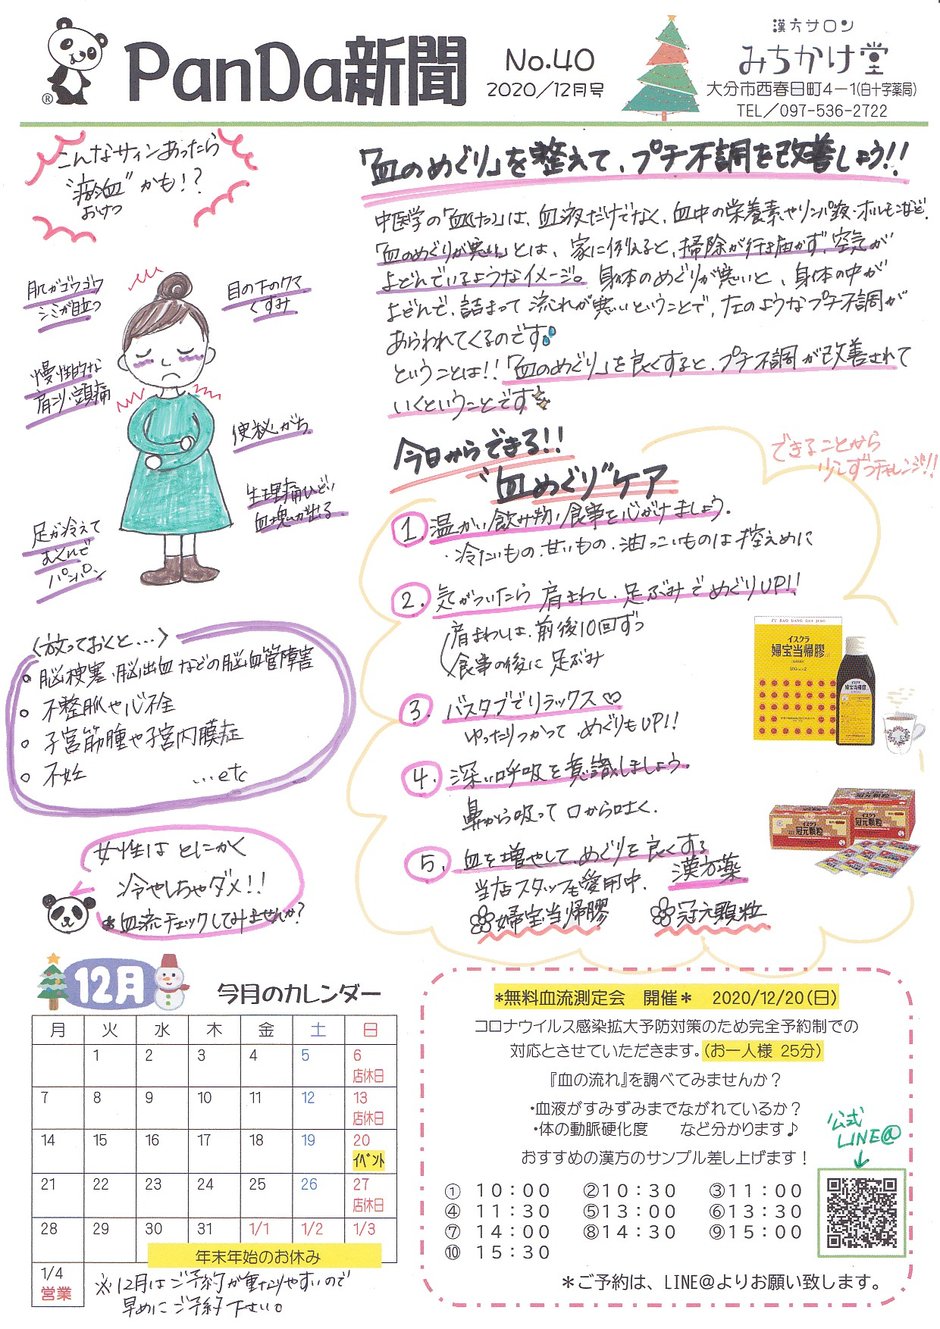 PanDa新聞
®
No.40
2020/12月号
漢方サロン
みちかけ堂
大分市西春日町4-1(白十字薬局)
TEL/097-536-2722
こんなサインあったら
"瘀血"かも!?
おけつ
肌がゴワゴワ
シミが目立つ
目の下のクマ
くすみ
慢性的な
肩こり、頭痛
便秘がち
生理痛ひどい
血塊が出る
足が冷えて
むくんで
パンパン
〈放っておくと…〉
○脳梗塞、脳出血などの脳血管障害
○不整脈や心不全
○子宮筋腫や子宮内膜症
○不妊 …etc
女性は とにかく
冷やしちゃダメ!!
*血流チェックしてみませんか?
「血のめぐり」を整えて、プチ不調を改善しよう!!
中医学の「血(けつ)」は、血液だけでなく、血中の栄養素やリンパ液・ホルモンなど。
「血のめぐりが悪い」とは、家に例えると、掃除が行き届かず、空気が
よどんでいるようなイメージ。身体のめぐりが悪いと、身体の中が
よどんで、詰まって 流れが悪いということで、左のようなプチ不調が
あらわれてくるのです
ということは!!「血のめぐり」を良くすると、プチ不調が改善されて
いくということです
今日からできる!!
"血めぐり"ケア
できることから
少しずつチャレンジ!!
1. 温かい飲み物・食事を心がけましょう。
・冷たいもの、甘いもの、油っこいものは控えめに
2. 気がついたら 肩まわし、足ぶみでめぐりUP!!
肩まわしは、前後10回ずつ
食事の後に 足ぶみ
3. バスタブでリラックス♡
ゆったりつかって めぐりもUP!!
4. 深い呼吸を意識しましょう。
鼻から吸って 口から吐く。
5. 血を増やして、めぐりを良くする 漢方薬
当店スタッフも愛用中。
婦宝当帰膠 冠元顆粒
イスクラ
婦宝当帰膠
イスクラ
冠元顆粒
12月
今月のカレンダー
月 火 水 木 金 土 日
1 2 3 4 5 6
店休日
7 8 9 10 11 12 13
店休日
14 15 16 17 18 19 20
イベント
21 22 23 24 25 26 27
店休日
28 29 30 31 1/1 1/2 1/3
年末年始のお休み
1/4
営業
※12月はご予約が重なりやすいので
早めにご予約下さい。
*無料血流測定会 開催* 2020/12/20(日)
コロナウイルス感染拡大予防対策のため完全予約制での
対応とさせていただきます。(お一人様 25分)
『血の流れ』を調べてみませんか?
・血液がすみずみまでながれているか?
・体の動脈硬化度 など分かります♪
おすすめの漢方のサンプル差し上げます!
公式
LINE@
① 10:00 ②10:30 ③11:00
④ 11:30 ⑤13:00 ⑥13:30
⑦ 14:00 ⑧14:30 ⑨15:00
⑩ 15:30
*ご予約は、LINE@よりお願い致します。